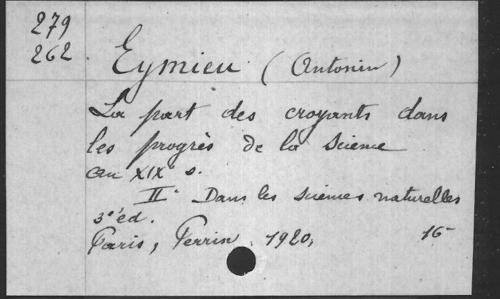 279
262
Eymieu (Antonin)
La part des croyants dans
les progrès de la Science
au XIXe s.
II. Dans les sciences naturelles
3e éd.
Paris, Perrin, 1920, 16-